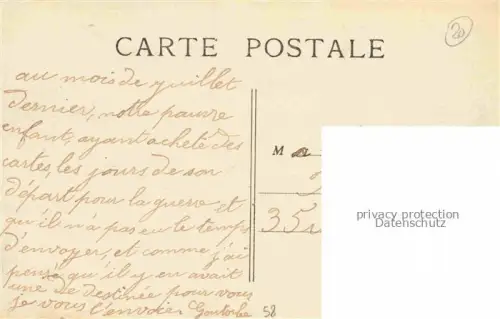 20
CARTE POSTALE
au mois de juillet
dernier, notre pauvre
enfant, ayant acheté des
cartes, les jours de son
départ pour la guerre et
qu'il n'a pas eu le temps
d'envoyer, et comme j'ai
pensé qu'il y en avait
une de destinée pour vous
je vous l'envoie
M
35
privacy protection
Datenschutz
58